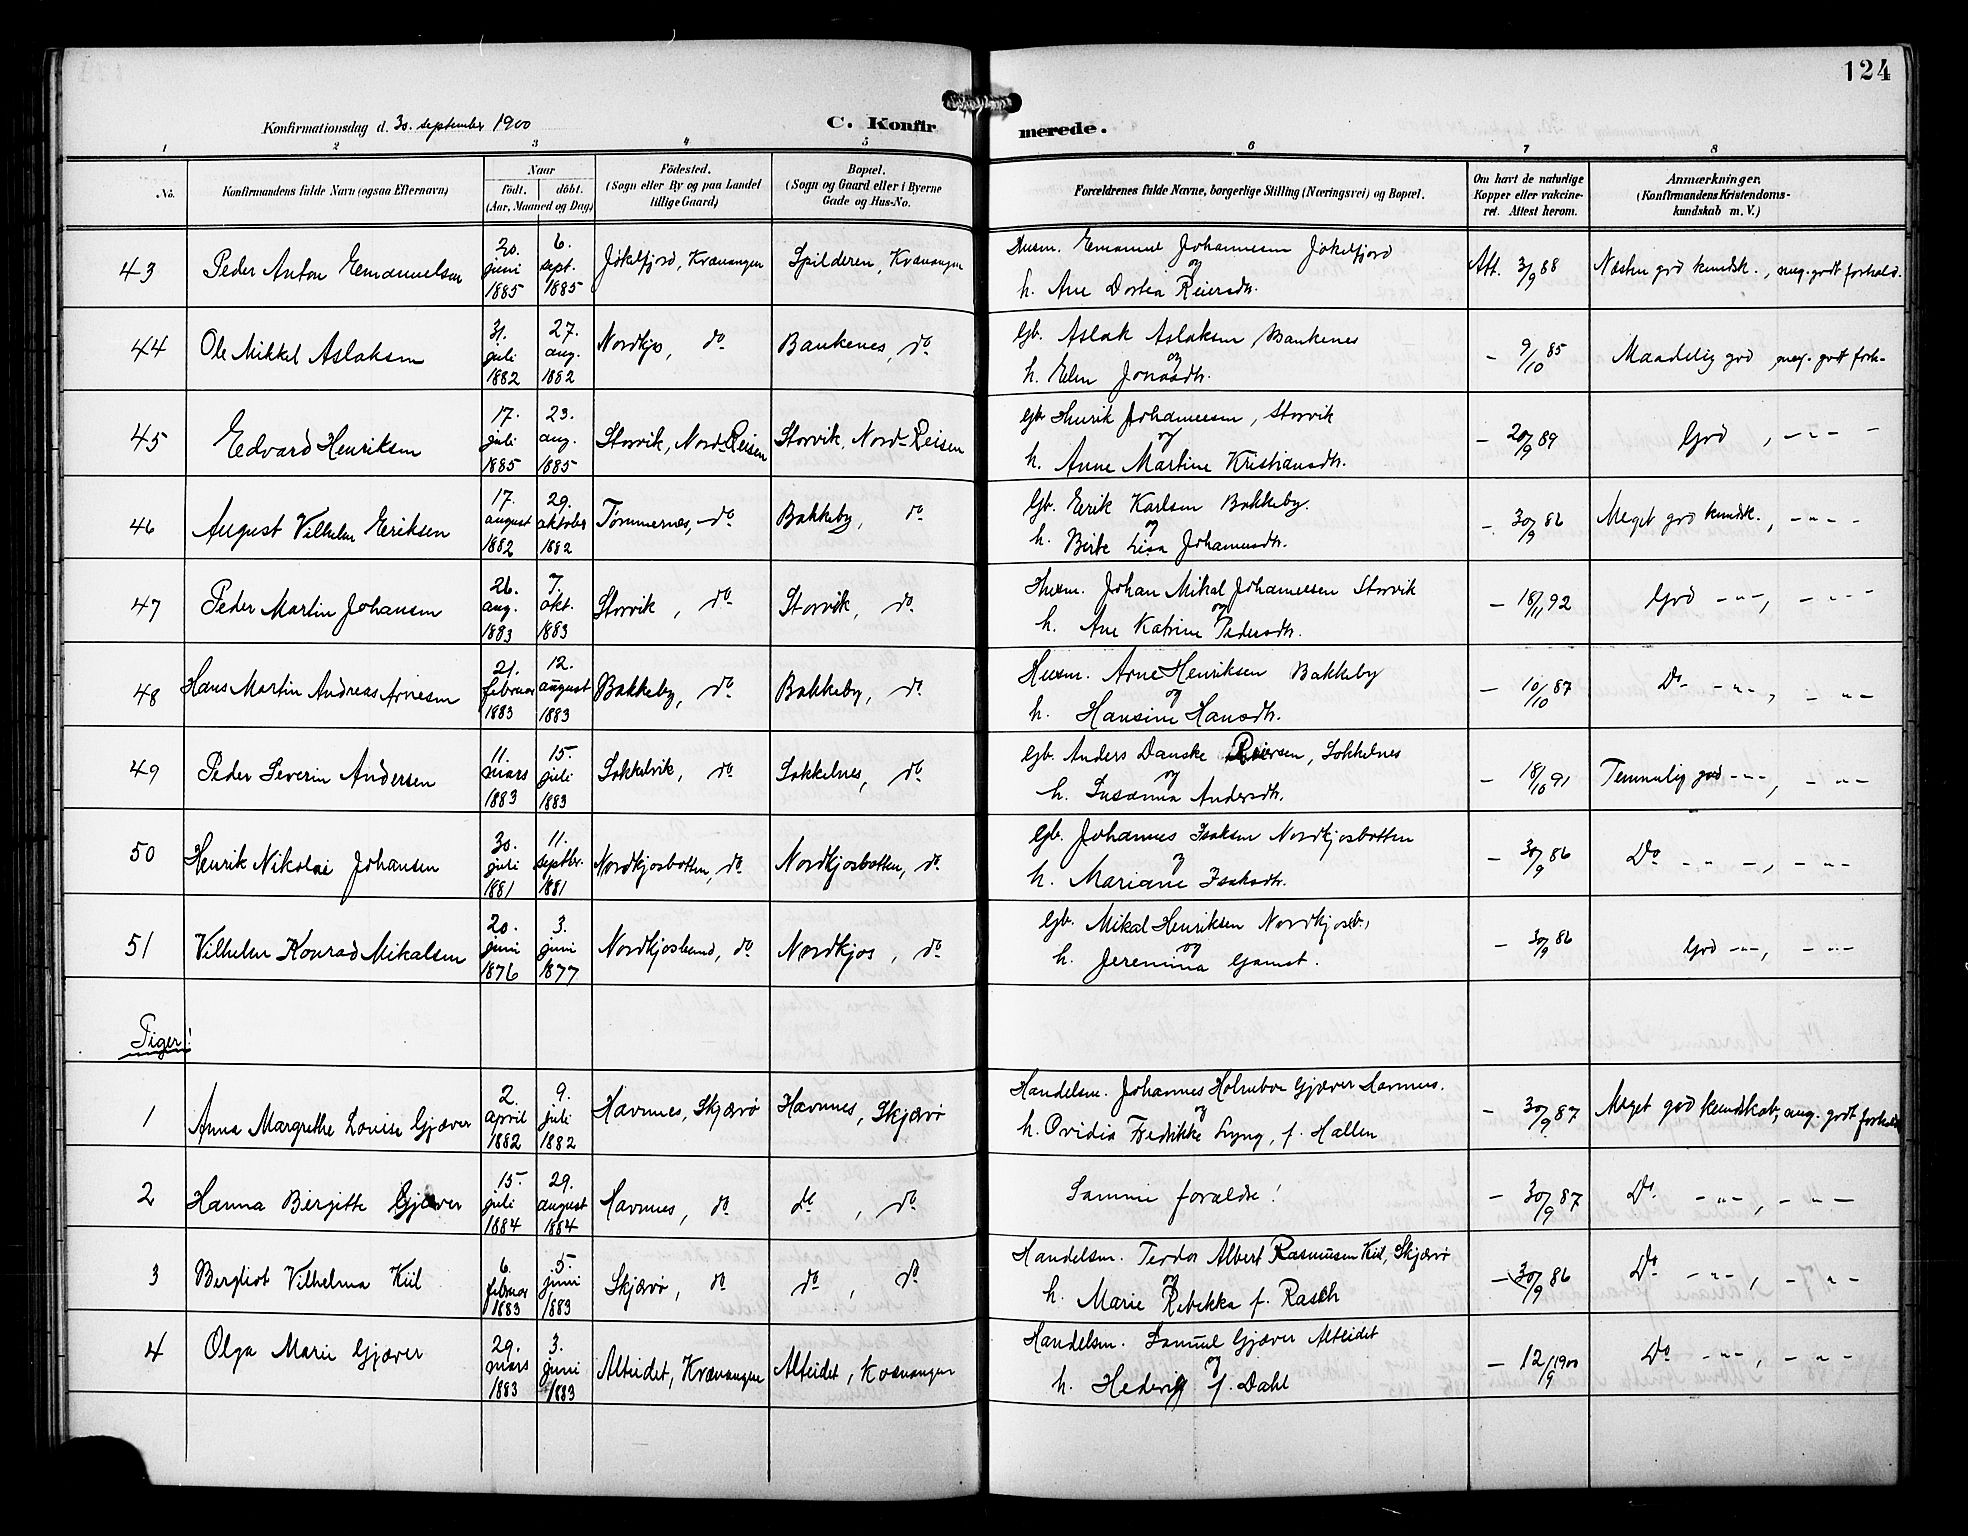 124
Konfirmationsdag d. 30. september 1900
C. Konfirmerede.
1 2 3 4 5 6 7 8
No.
Konfirmandens fulde Navn (ogsaa Efternavn)
Naar
födt. döbt.
(Aar, Maaned og Dag)
Födested.
(Sogn eller By og paa Landet
tillige Gaard)
Bopæl.
(Sogn og Gaard eller i Byerne
Gade og Hus-No.
Forældrenes fulde Navne, borgerlige Stilling (Næringsvei) og Bopæl.
Om havt de naturlige
Kopper eller vakcine-
ret. Attest herom.
Anmærkninger,
(Konfirmandens Kristendoms-
kundskab m. V.)
43 Peder Anton Emanuelsen 20. juni 1885 6. sept. 1885 Jökelfjord, Kvænangen Spilderen, Kvænangen
Husm. Emanuel Johannesen Jökelfjord
og
h. Ane Dortea Reiersdtr.
Att. 3/9 88 Næsten god kundsk., meg. godt forhold.
44 Ole Mikkel Aslaksen 31. juli 1882 27. aug. 1882 Nordkjos, do Bankenes, do
Gb. Aslak Aslaksen Bankenes
og
h. Elen Jonasdtr.
- 9/10 85 Maadelig god, meg. godt forh-
45 Edvard Henriksen 17. juli 1885 23. aug. 1885 Storvik, Nord-Reisen Storvik, Nord-Reisen
Gb. Henrik Johannesen, Storvik
og
h. Anne Martine Kristiansdtr.
- 20/9 89 God, -"- -
46 August Vilhelm Eriksen 17. august 1882 29. oktober 1882 Tömmernes, do Bakkeby, do
Gb. Erik Karlsen Bakkeby.
og
h. Berte Lisa Johannesdtr.
- 30/9 86 Meget god kundsk., -"- -
47 Peder Martin Johansen 26. aug. 1883 7. okt. 1883 Storvik, do Storvik, do
Husm. Johan Mikal Johannesen Storvik
og
h. Ane Katrine Pedersdtr.
- 18/11 92 God -"-, -"-
48 Hans Martin Andreas Arnesen 21. februar 1883 12. august 1883 Bakkeby, do Bakkeby, do
Husm. Arne Henriksen Bakkeby
og
h. Hansine Hansdtr.
- 10/10 87 Do -"-, - "-
49 Peder Severin Andersen 11. mars 1883 15. juli 1883 Sokkelvik, do Sokkelnes, do
Gb. Anders Danske Reiersen, Sokkelnes
og
h. Susanna Andersdtr.
- 18/10 91 Temmelig god -"-, - "-
50 Henrik Nikolai Johansen 30. juli 1881 11. septbr. 1881 Nordkjosbotten, do Nordkjosbotten, do
Gb. Johannes Isaksen Nordkjosbotten
og
h. Mariane Isaksdtr.
- 30/9 86 Do - " -, - "-
51 Vilhelm Konrad Mikalsen 20. juni 1876 3. juni 1877 Nordkjosbund, do Nordkjos, do
Gb. Mikal Henriksen Nordkjosb.,
og
h. Jeremina Gamst.
- 30/9 86 God -"-, - "-
Piger!
1 Anna Margrethe Lovise Gjæver 2. april 1882 9. juli 1882 Havnnes, Skjærvö Havnnes, Skjærvö
Handelsm. Johannes Holmboe Gjæver Havnnes.
og
h. Ovidia Fredrikke Lyng, f. Hallen
- 30/9 87 Meget god kundskab, meg. godt forhold
2 Hanna Bergitte Gjæver 15. juli 1884 29. august 1884 Havnnes, do do, do
Samme forældre!
- 30/9 87 Do -"-, - "-
3 Bergliot Vilhelma Kiil 6. februar 1883 5. juni 1883 Skjærvö, do do, do
Handelsm. Teodor Albert Rasmussen Kiil, Skjærvö
og
h. Marie Rebekka f. Rasch
- 30/9 86 Do -"-, - "-
4 Olga Marie Gjæver 29. mars 1883 3. juni 1883 Alteidet, Kvænangen Alteidet, Kvænangen
Handelsm. Samuel Gjæver Alteidet
og
h. Hedevig f. Dahl
- 12/9 1900 Do -"-, - "-